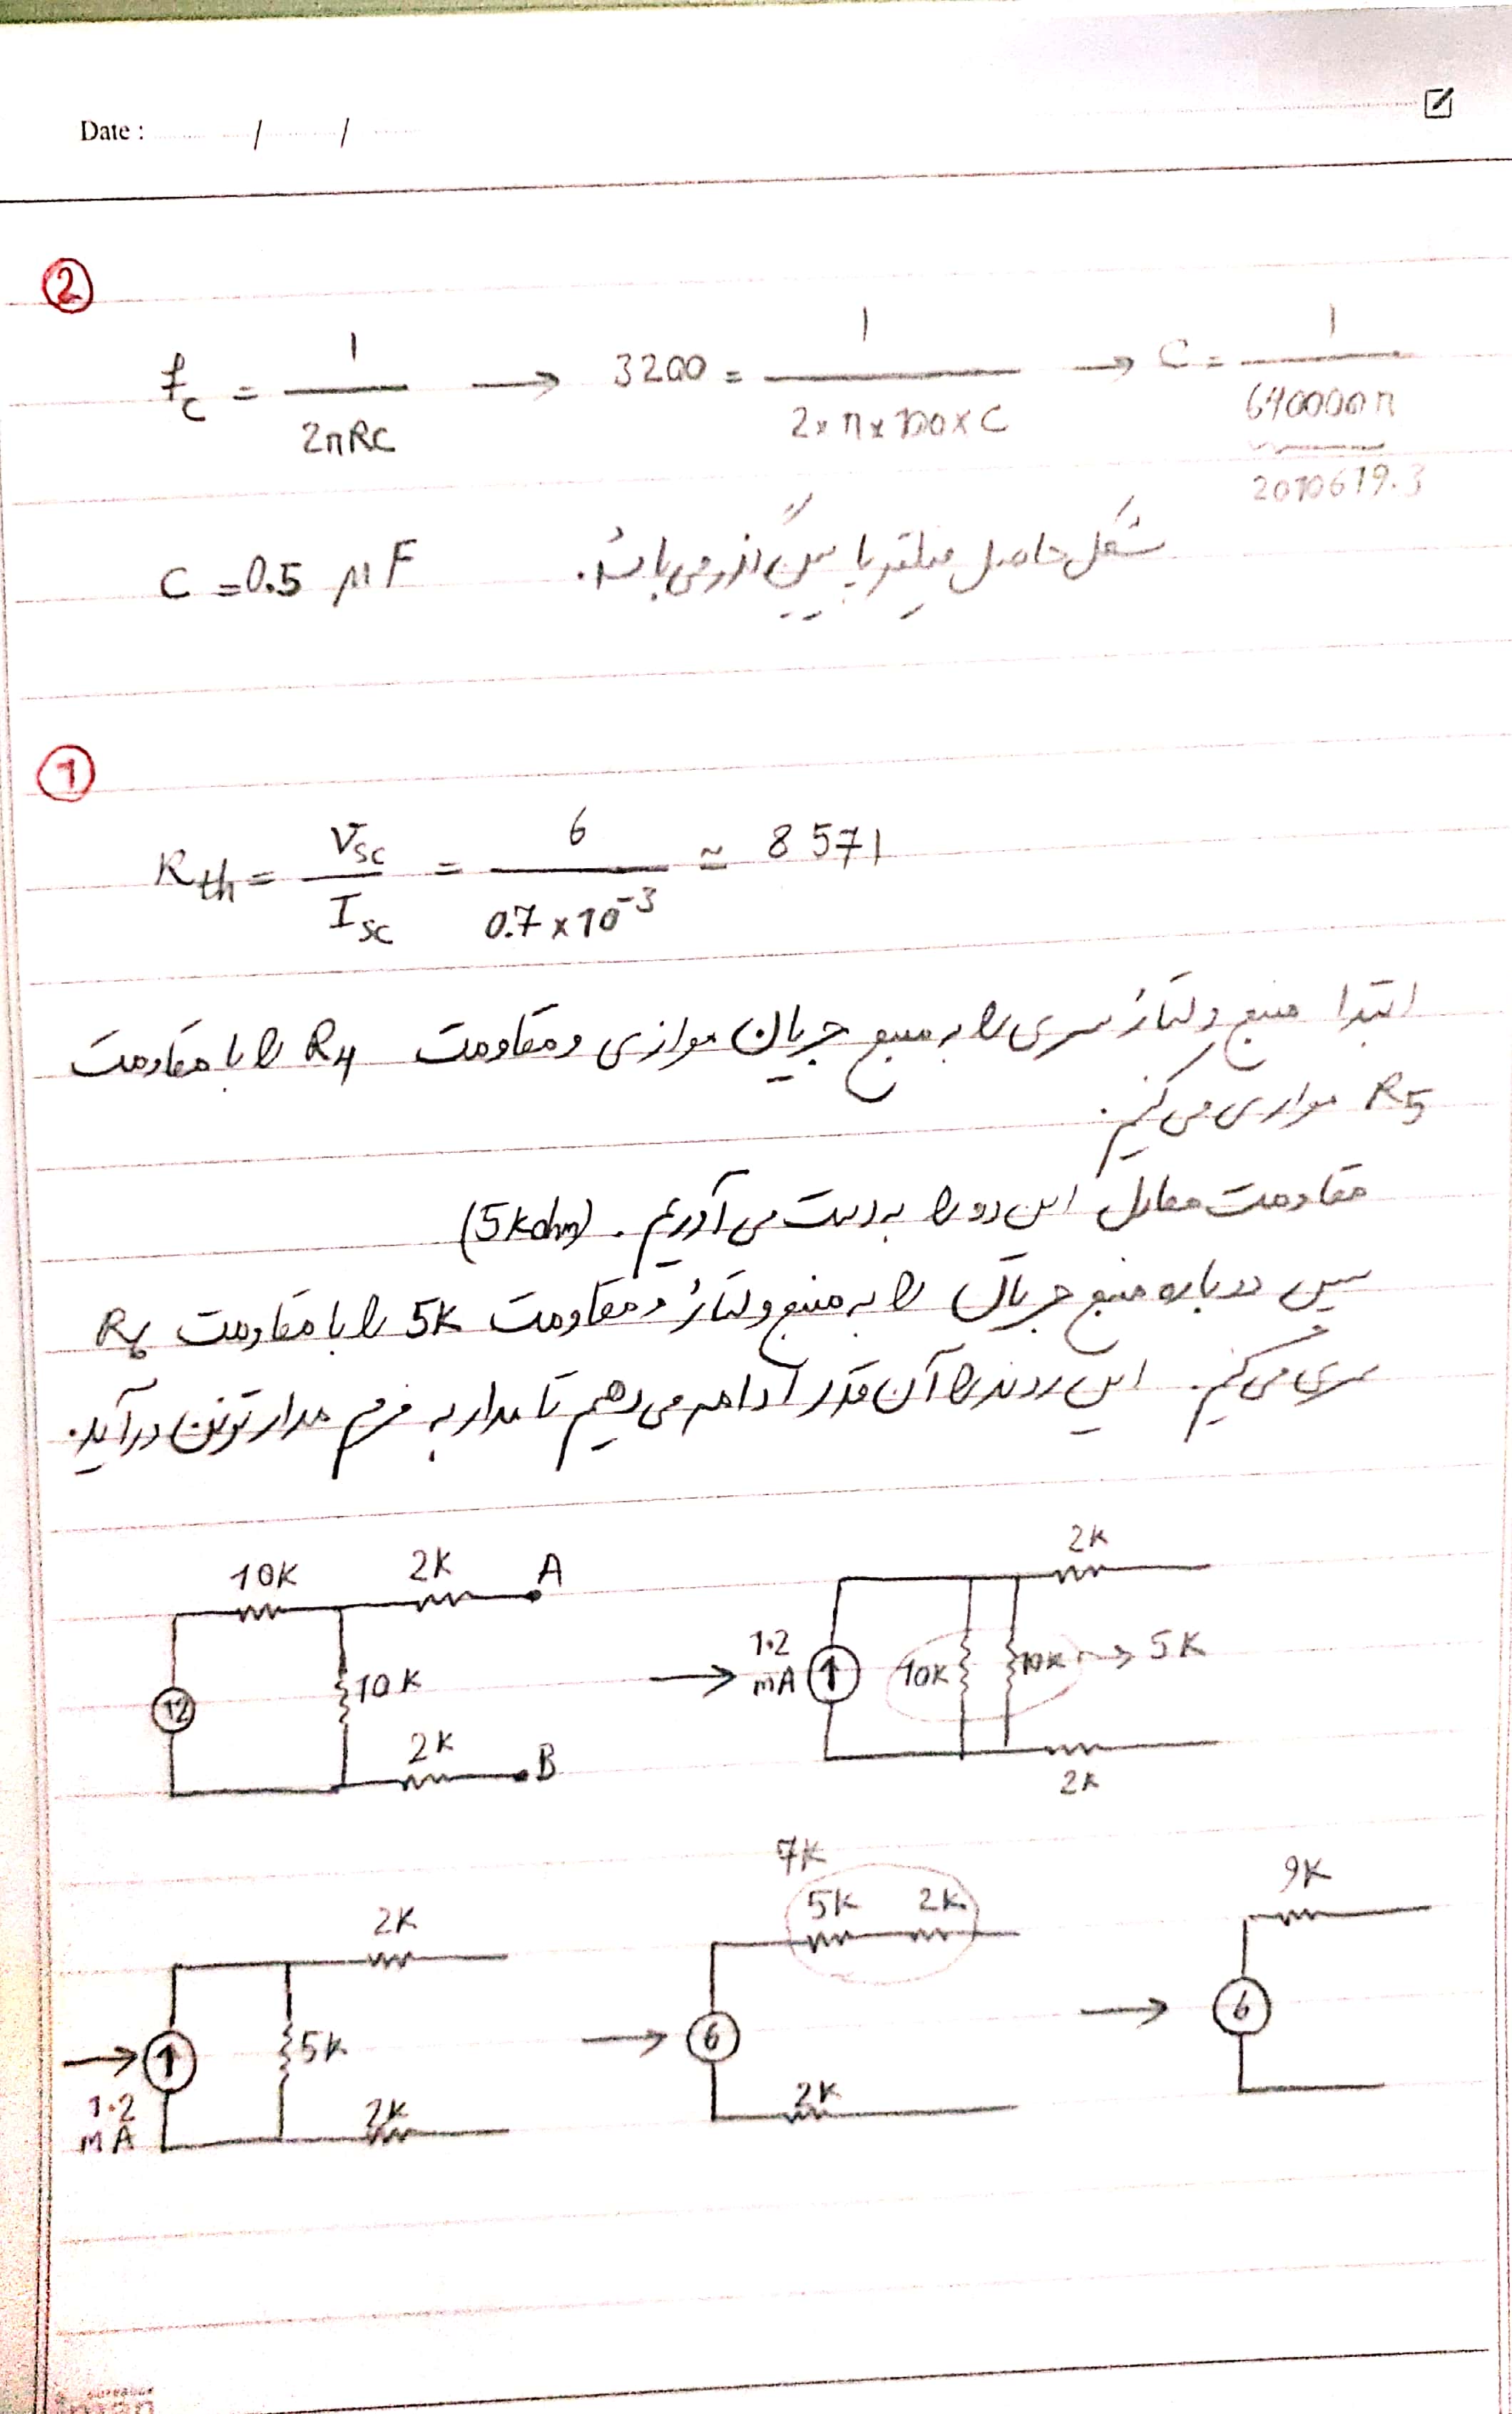 Date : / /
2
fc = 1 / 2πRC → 3200 = 1 / 2×π×100×C → C = 1 / 640000π
2010619.3
C = 0.5 μF شکل حاصل فیلتر پایین گذر می باشد.
1
Rth = Vsc / Isc = 6 / 0.7×10^-3 ≈ 8571
ابتدا منبع ولتاژ سری را به منبع جریان موازی و مقاومت R4 را با مقاومت
R5 موازی می کنیم.
مقاومت معادل این دو را به دست می آوریم. (5kohm)
سپس دوباره منبع جریان را به منبع ولتاژ و مقاومت 5K را با مقاومت R6
سری می کنیم. این روند را آن قدر ادامه می دهیم تا مدار به فرم مدار تونن درآید.
10K 2K A
12 10K
2K B
→ 1.2 mA ↑ 10K 10K → 5K
2K
2K
→ ↑ 1.2 mA
2K
5K
2K
→ 6
7K
5K 2K
2K
→ 6
9K